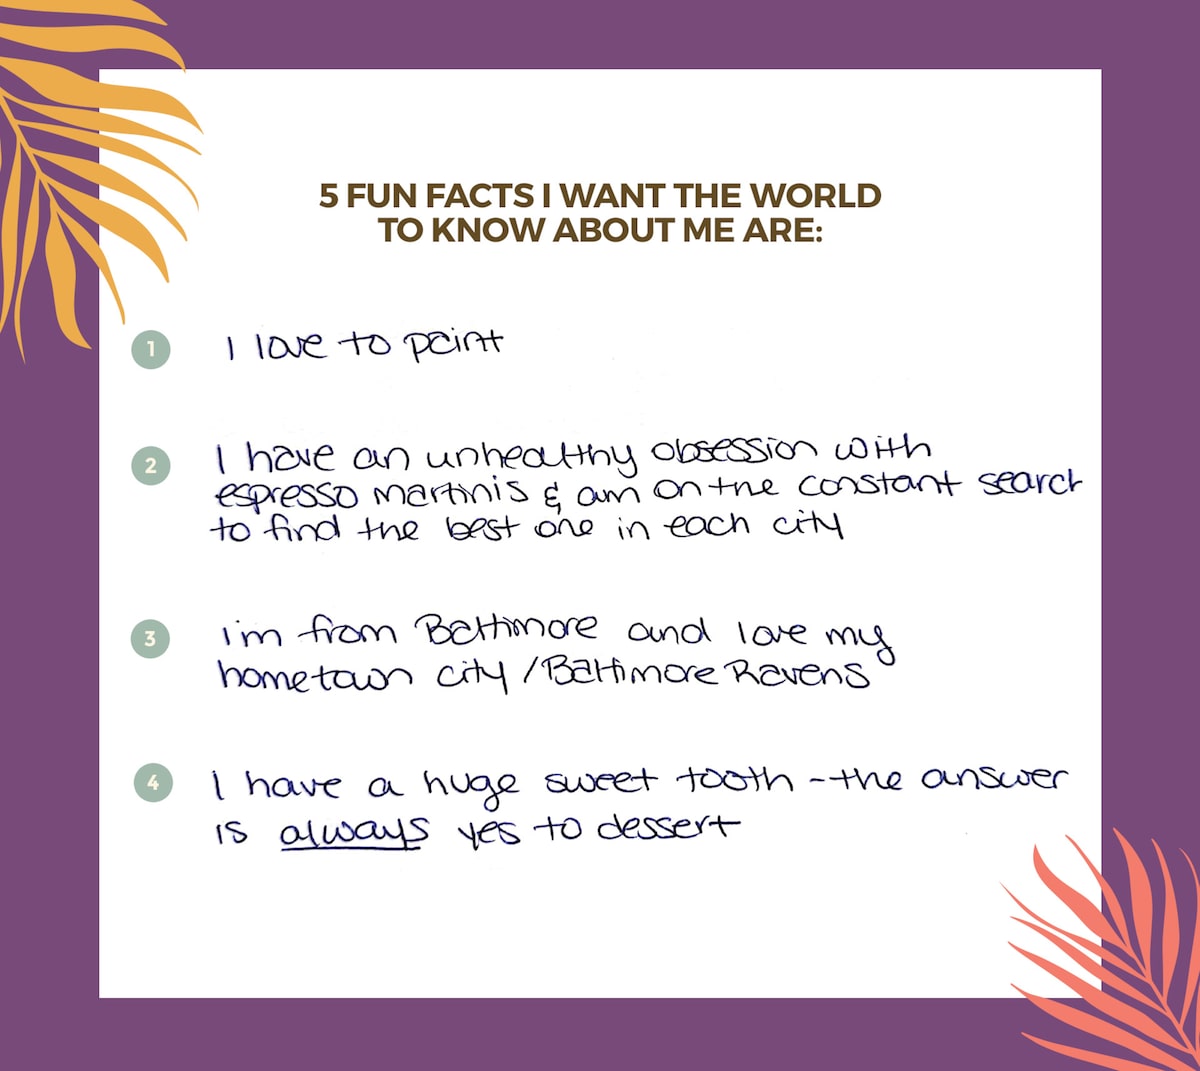 5 FUN FACTS I WANT THE WORLD
TO KNOW ABOUT ME ARE:
1 I love to paint
2 I have an unhealthy obsession with
espresso martinis & am on the constant search
to find the best one in each city
3 I'm from Baltimore and love my
hometown city / Baltimore Ravens
4 I have a huge sweet tooth - the answer
is always yes to dessert